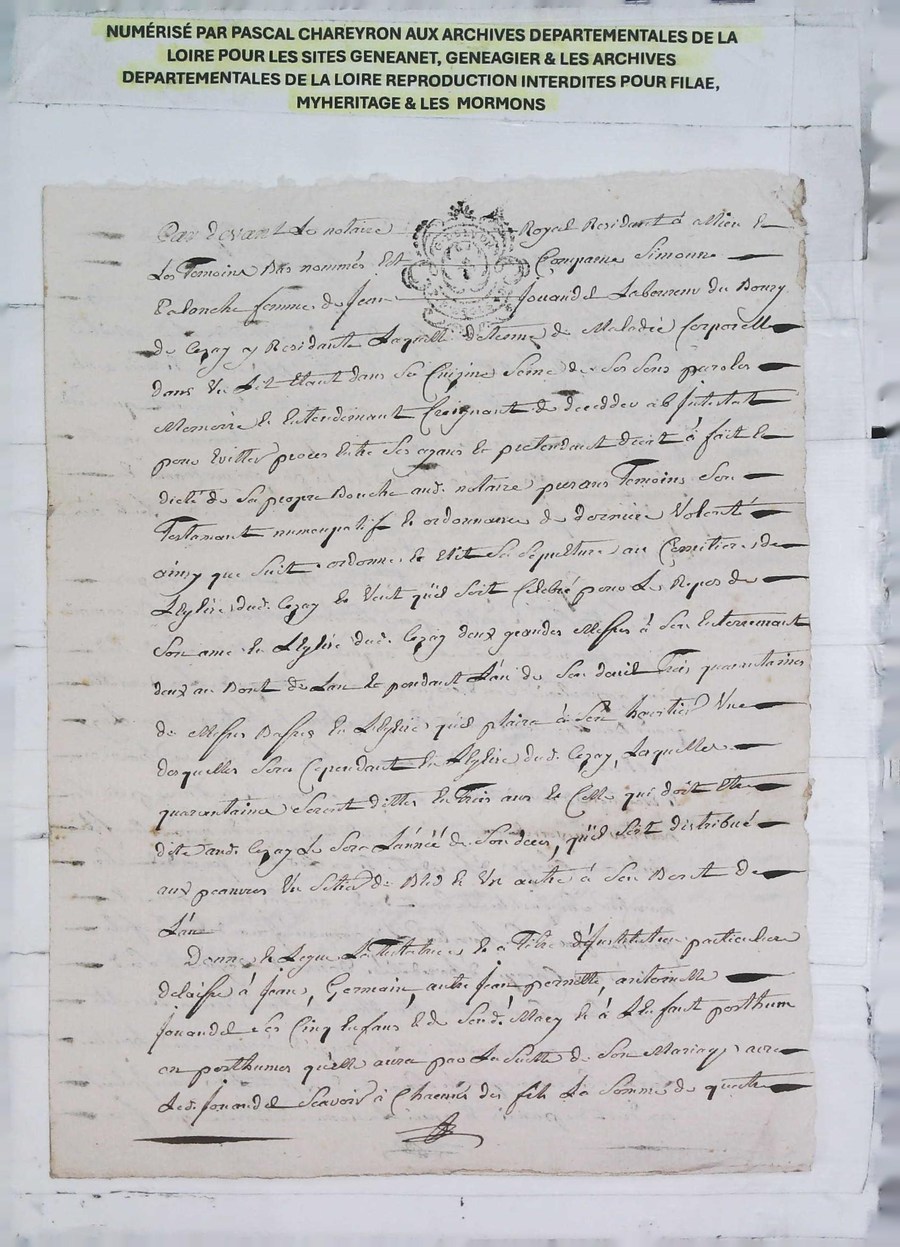 NUMÉRISÉ PAR PASCAL CHAREYRON AUX ARCHIVES DEPARTEMENTALES DE LA
LOIRE POUR LES SITES GENEANET, GENEAGIER & LES ARCHIVES
DEPARTEMENTALES DE LA LOIRE REPRODUCTION INTERDITES POUR FILAE,
MYHERITAGE & LES MORMONS
Par devant Le notaire Royal Residant à et
Les Temoins Bas nommés Est Comparue Simonne
Palanche femme de Jean Jouandel Laboureur du Bourg
de Cezay y Residante Laquelle detenue de Maladie Corporelle
dans Un Lit Etant dans Ses sens paroles
Memoire Et Entendimant Craignant de decedder ab Intestat
pour Evitter proces Entre Ses ayans Et pretendant droit à fait Et
dicté de Sa propre Bouche aud. notaire presans Temoins Son
Testamant nuncupatif Et ordonnance de derniere Volonté
ainsy que Suit ordonne Et Elit Sa Sepulture au Cemitiere de
L'Eglise dud. Cezay Et Veut qu'il soit Celebré pour Le Repos de
Son ame En L'Eglise dud. Cezay deux grandes Messes à Son Enterremant
deux au Bout de L'an Et pendant L'an de Son deuil Trois quarantaines
de Messes Basses En L'Eglise qu'il plaira à Son heritier Une
desquelles Sera Cependant En L'Eglise dud. Cezay, Laquelles
quarantaines Seront dittes En Trois ans Et Celle qui doit Etre
dite aud. Cezay Le Sera L'année de Son deces, qu'il Soit distribué
aux peauvres Un Setier de Bled Et Un autre à Son Bout de
L'an
Donne Et Legue La Testatrice Et a Titre d'Institution particuliere
delaisse à Jean, Germain, autre Jean pernette, antoinette
Jouandel Ses Cinq Enfans Et de Sond. Mary Et à L'Enfant posthume
ou posthumes qu'elle aura par La Suitte de Son Mariage avec
Led. Jouandel Scavoir à Chacuns des fils La Somme de quatre